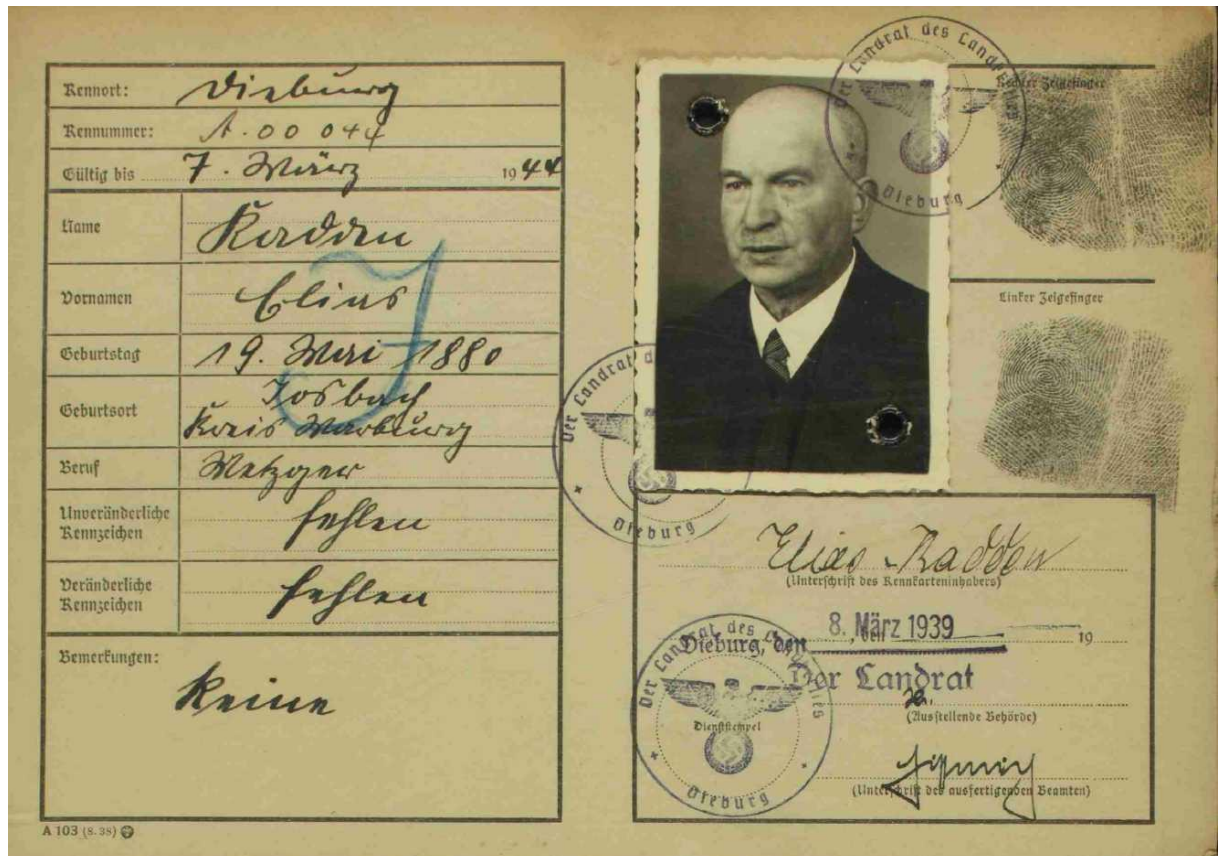 Kennort: Dieburg
Kennummer: A. 00 044
Gültig bis 7. März 1944
Name Kadden
Vornamen Elias
Geburtstag 19. Mai 1880
Geburtsort Josbach
Kreis Marburg
Beruf Metzger
Unveränderliche
Kennzeichen fehlen
Veränderliche
Kennzeichen fehlen
Bemerkungen:
Keine
J
A 103 (8. 38)
Der Landrat des Landkreises
Dieburg
Rechter Zeigefinger
Linker Zeigefinger
Der Landrat d
Dieburg
Elias Kadden
(Unterschrift des Kennkarteninhabers)
Dieburg, den 8. März 1939 19
Der Landrat
(Ausstellende Behörde)
Der Landrat des Landkreises
Dienststempel
Dieburg
(Unterschrift des ausfertigenden Beamten)